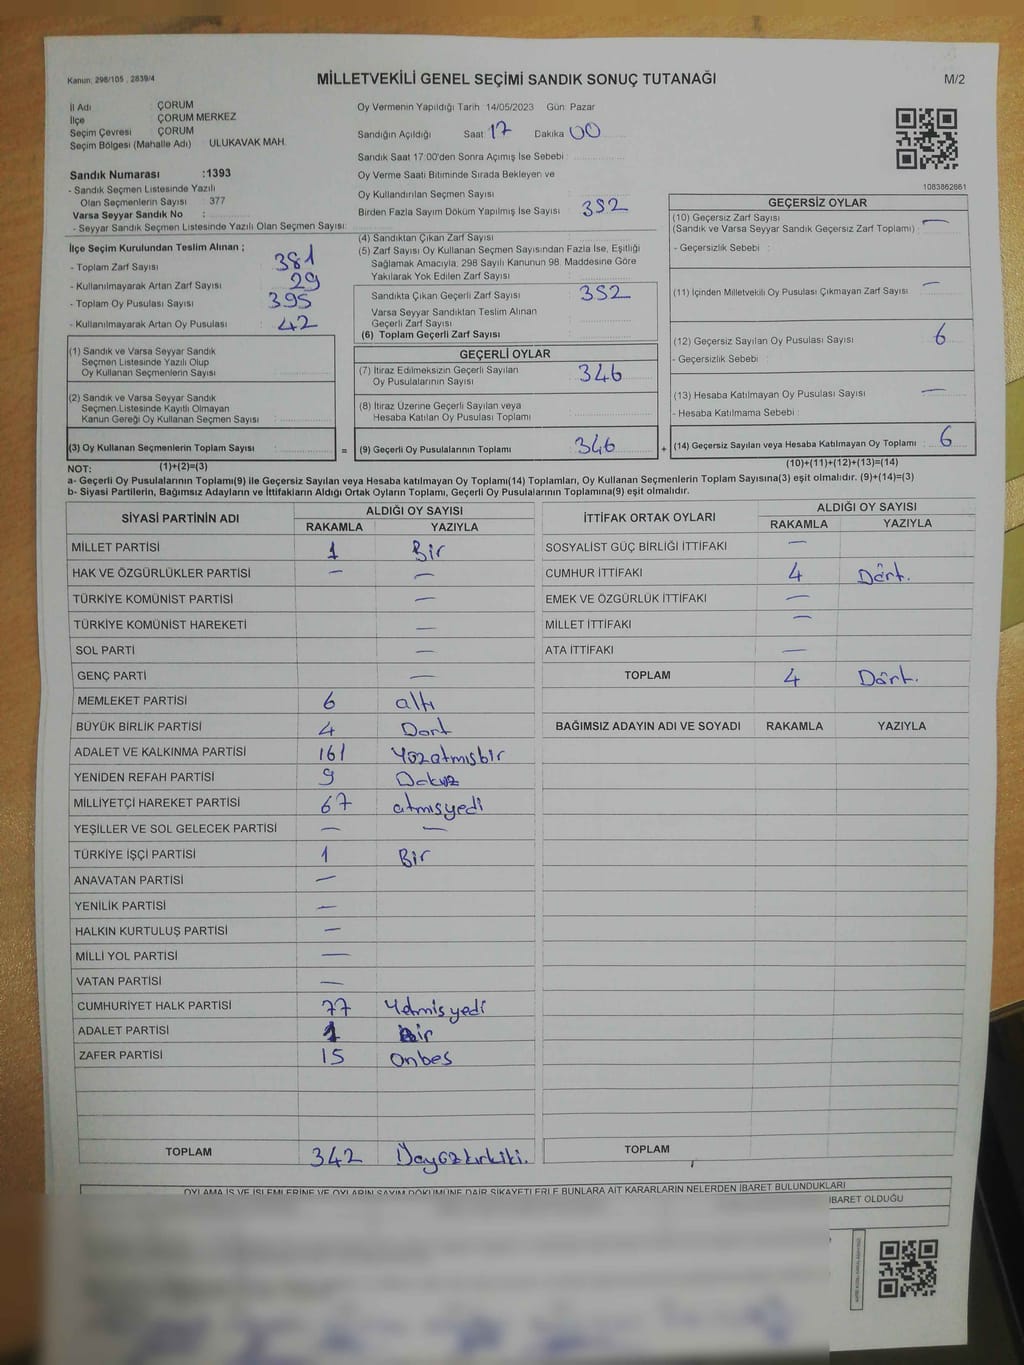 Kanun: 298/105 , 2839/4
MİLLETVEKİLİ GENEL SEÇİMİ SANDIK SONUÇ TUTANAĞI
M/2
İl Adı ÇORUM
İlçe ÇORUM MERKEZ
Seçim Çevresi ÇORUM
Seçim Bölgesi (Mahalle Adı) ULUKAVAK MAH.
Sandık Numarası :1393
- Sandık Seçmen Listesinde Yazılı
Olan Seçmenlerin Sayısı : 377
Varsa Seyyar Sandık No :
- Seyyar Sandık Seçmen Listesinde Yazılı Olan Seçmen Sayısı:
Oy Vermenin Yapıldığı Tarih 14/05/2023 Gün: Pazar
Sandığın Açıldığı Saat 17 Dakika 00
Sandık Saat 17:00'den Sonra Açımış İse Sebebi :
Oy Verme Saati Bitiminde Sırada Bekleyen ve
Oy Kullandırılan Seçmen Sayısı :
Birden Fazla Sayım Döküm Yapılmış İse Sayısı : 352
1083862661
İlçe Seçim Kurulundan Teslim Alınan ;
- Toplam Zarf Sayısı : 381
- Kullanılmayarak Artan Zarf Sayısı : 29
- Toplam Oy Pusulası Sayısı : 395
- Kullanılmayarak Artan Oy Pusulası : 42
(1) Sandık ve Varsa Seyyar Sandık
Seçmen Listesinde Yazılı Olup
Oy Kullanan Seçmenlerin Sayısı :
(2) Sandık ve Varsa Seyyar Sandık
Seçmen Listesinde Kayıtlı Olmayan
Kanun Gereği Oy Kullanan Seçmen Sayısı :
(3) Oy Kullanan Seçmenlerin Toplam Sayısı :
(1)+(2)=(3)
(4) Sandıktan Çıkan Zarf Sayısı :
(5) Zarf Sayısı Oy Kullanan Seçmen Sayısından Fazla İse, Eşitliği
Sağlamak Amacıyla, 298 Sayılı Kanunun 98. Maddesine Göre
Yakılarak Yok Edilen Zarf Sayısı :
Sandıkta Çıkan Geçerli Zarf Sayısı : 352
Varsa Seyyar Sandıktan Teslim Alınan
Geçerli Zarf Sayısı :
(6) Toplam Geçerli Zarf Sayısı :
GEÇERLİ OYLAR
(7) İtiraz Edilmeksizin Geçerli Sayılan
Oy Pusulalarının Sayısı : 346
(8) İtiraz Üzerine Geçerli Sayılan veya
Hesaba Katılan Oy Pusulası Toplamı :
= (9) Geçerli Oy Pusulalarının Toplamı : 346
GEÇERSİZ OYLAR
(10) Geçersiz Zarf Sayısı
(Sandık ve Varsa Seyyar Sandık Geçersiz Zarf Toplamı) : —
- Geçersizlik Sebebi :
(11) İçinden Milletvekili Oy Pusulası Çıkmayan Zarf Sayısı : —
(12) Geçersiz Sayılan Oy Pusulası Sayısı : 6
- Geçersizlik Sebebi :
(13) Hesaba Katılmayan Oy Pusulası Sayısı : —
- Hesaba Katılmama Sebebi :
+ (14) Geçersiz Sayılan veya Hesaba Katılmayan Oy Toplamı : 6
(10)+(11)+(12)+(13)=(14)
NOT:
a- Geçerli Oy Pusulalarının Toplamı(9) ile Geçersiz Sayılan veya Hesaba katılmayan Oy Toplamı(14) Toplamları, Oy Kullanan Seçmenlerin Toplam Sayısına(3) eşit olmalıdır. (9)+(14)=(3)
b- Siyasi Partilerin, Bağımsız Adayların ve İttifakların Aldığı Ortak Oyların Toplamı, Geçerli Oy Pusulalarının Toplamına(9) eşit olmalıdır.
SİYASİ PARTİNİN ADI ALDIĞI OY SAYISI
RAKAMLA YAZIYLA
MİLLET PARTİSİ 1 Bir
HAK VE ÖZGÜRLÜKLER PARTİSİ — —
TÜRKİYE KOMÜNİST PARTİSİ —
TÜRKİYE KOMÜNİST HAREKETİ —
SOL PARTİ —
GENÇ PARTİ —
MEMLEKET PARTİSİ 6 altı
BÜYÜK BİRLİK PARTİSİ 4 Dort
ADALET VE KALKINMA PARTİSİ 161 Yüzatmışbir
YENİDEN REFAH PARTİSİ 9 Dokuz
MİLLİYETÇİ HAREKET PARTİSİ 67 atmışyedi
YEŞİLLER VE SOL GELECEK PARTİSİ — —
TÜRKİYE İŞÇİ PARTİSİ 1 Bir
ANAVATAN PARTİSİ —
YENİLİK PARTİSİ —
HALKIN KURTULUŞ PARTİSİ —
MİLLİ YOL PARTİSİ —
VATAN PARTİSİ —
CUMHURİYET HALK PARTİSİ 77 Yetmişyedi
ADALET PARTİSİ 1 Bir
ZAFER PARTİSİ 15 onbeş
TOPLAM 342
İTTİFAK ORTAK OYLARI ALDIĞI OY SAYISI
RAKAMLA YAZIYLA
SOSYALİST GÜÇ BİRLİĞİ İTTİFAKI —
CUMHUR İTTİFAKI 4 Dört.
EMEK VE ÖZGÜRLÜK İTTİFAKI —
MİLLET İTTİFAKI —
ATA İTTİFAKI —
TOPLAM 4 Dört.
BAĞIMSIZ ADAYIN ADI VE SOYADI RAKAMLA YAZIYLA
TOPLAM
OYLAMA İŞ VE İŞLEMLERİNE VE OYLARIN SAYIM DÖKÜMÜNE DAİR ŞİKAYETLERLE BUNLARA AİT KARARLARIN NELERDEN İBARET BULUNDUKLARI
İBARET OLDUĞU